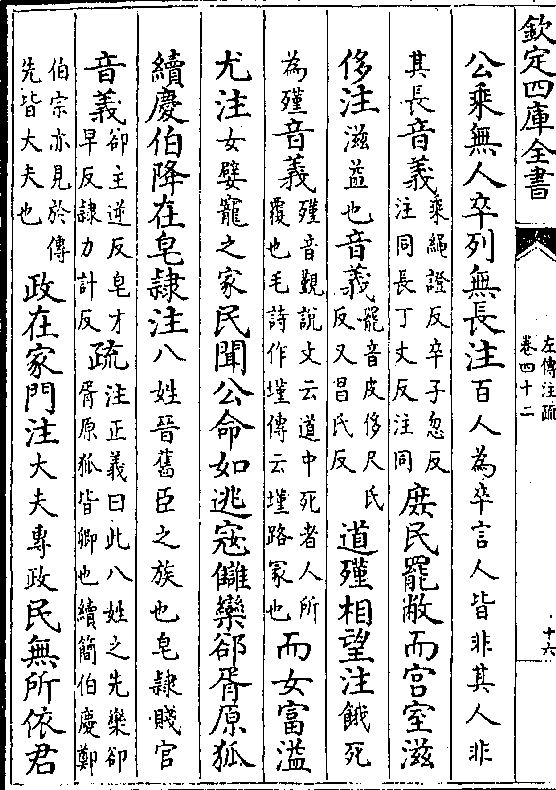 欽定四庫全書
左傳注疏
卷四十二
十六
公乘無人卒列無長注百人為卒言人皆非其人非
其長音義乘繩證反卒子忽反注同長丁丈反注同庶民罷敝而宮室滋
侈注滋益也音義罷音皮侈尺氏反又昌氏反道殣相望注餓死
為殣音義殣音覲說文云道中死者人所覆也毛詩作墐傳云墐路冢也而女富溢
尤注女嬖寵之家民聞公命如逃寇讎欒郤胥原狐
續慶伯降在皂隸注八姓晉舊臣之族也皂隸賤官
音義郤主逆反皂才早反隸力計反疏注正義曰此八姓之先欒郤胥原狐皆卿也續簡伯慶鄭
伯宗亦見於傳先皆大夫也政在家門注大夫專政民無所依君